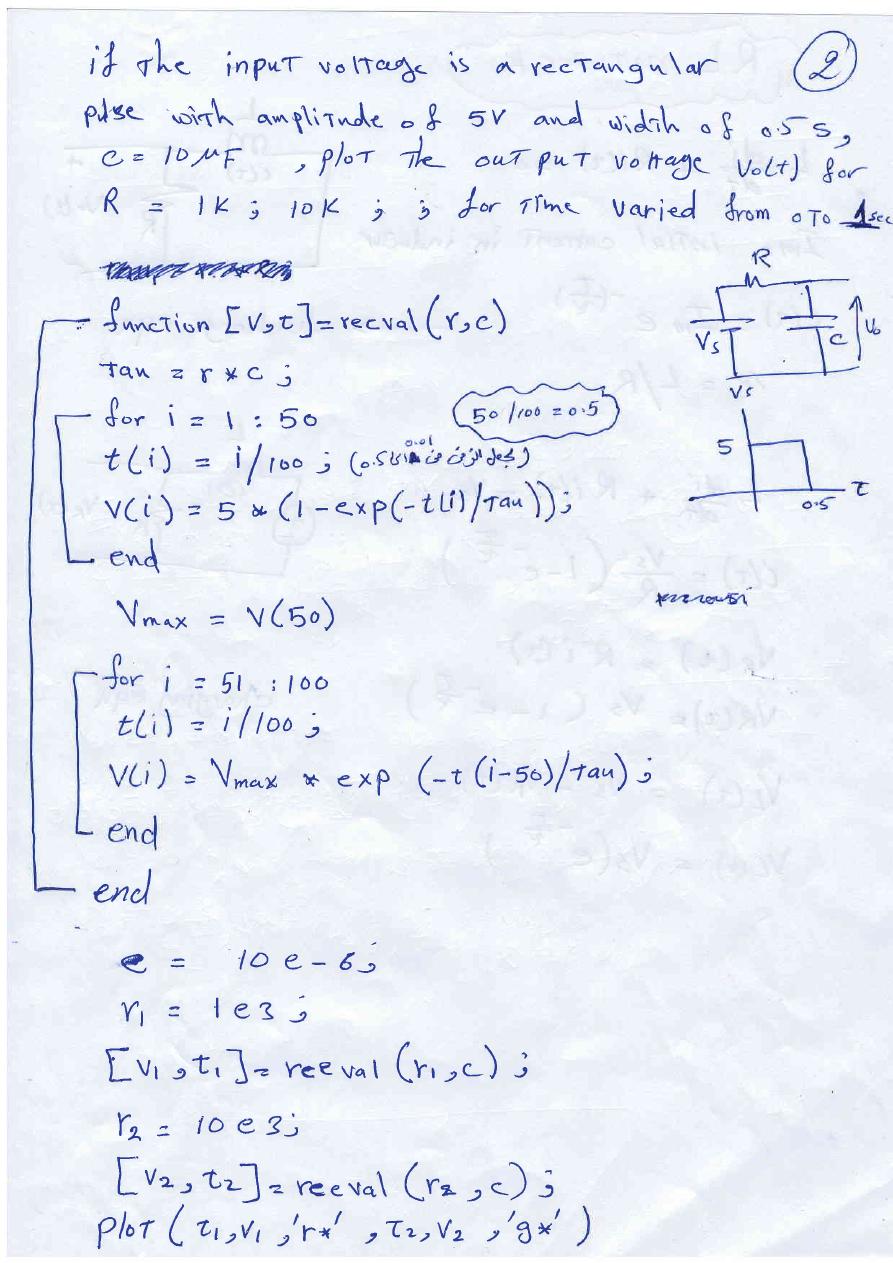 if the input voltage is a rectangular
2
pulse with amplitude of 5V and width of 0.5 s,
c = 10 µF , plot the output voltage Vo(t) for
R = 1K ; 10K ; ; for Time varied from 0 To 1sec
function [V,t] = recval (r,c)
R
Vs
C
Vo
tau = r * c ;
for i = 1 : 50
50/100 = 0.5
t(i) = i/100 ;
0.01
V(i) = 5 * (1-exp(-t(i)/Tau));
end
Vs
5
0.5
t
Vmax = V(50)
for i = 51 : 100
t(i) = i/100 ;
V(i) = Vmax * exp (-t (i-50)/tau) ;
end
end
c = 10 e-6;
r1 = 1e3 ;
[V1,t1] = reeval (r1,c) ;
r2 = 10e3;
[V2,t2] = reeval (r2,c) ;
plot (t1,V1,'r*' , t2,V2 ,'g*')